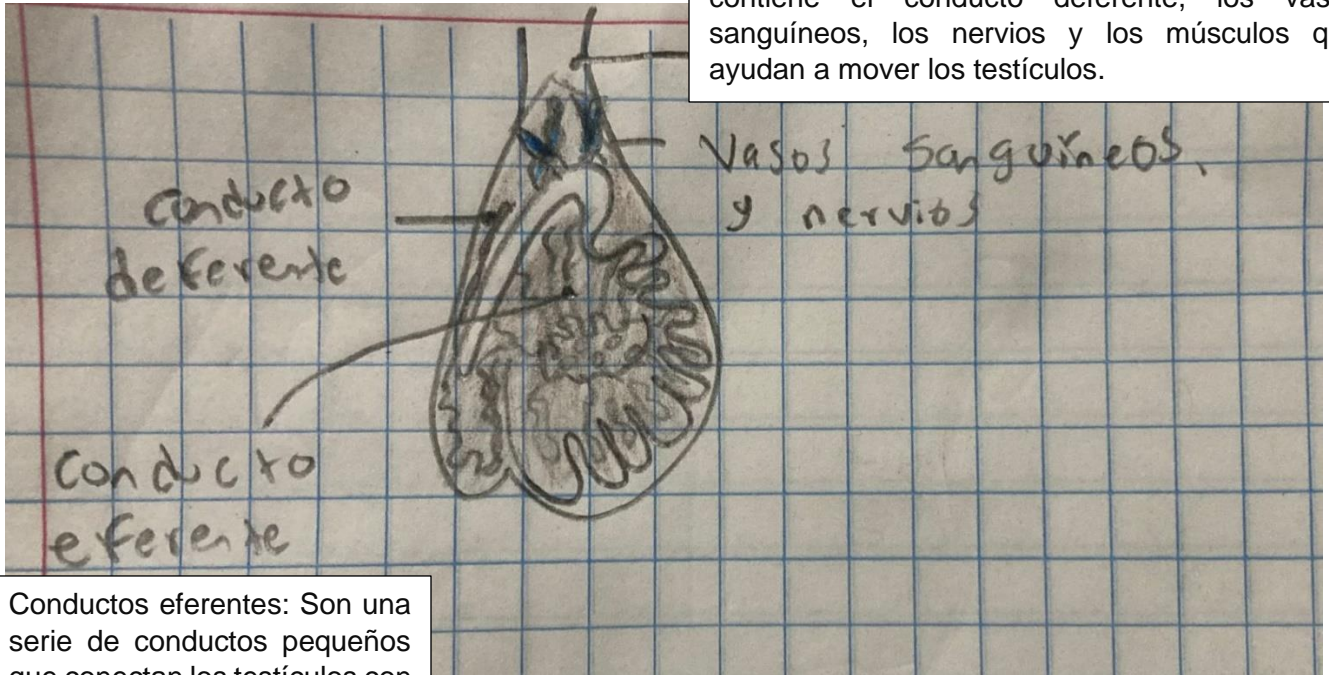 sanguíneos, los nervios y los músculos
ayudan a mover los testículos.
Vasos Sanguíneos,
y nervios
Conducto
deferente
Conducto
eferente
Conductos eferentes: Son una
serie de conductos pequeños